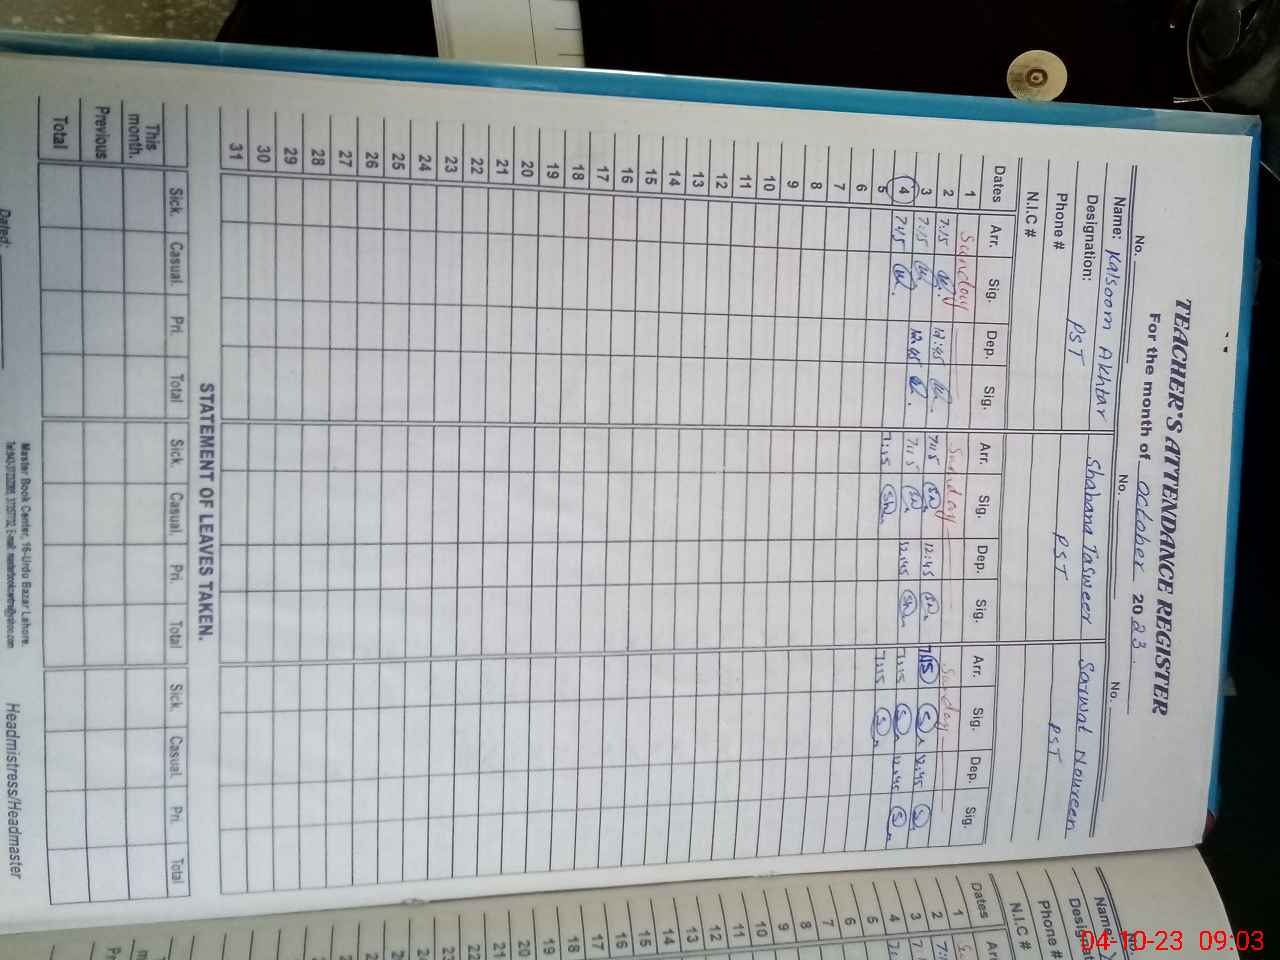 TEACHER'S ATTENDANCE REGISTER
For the month of October 2023.
No. No. No.
Name: Kalsoom Akhtar Shabana Tasweer Sarwat Noureen
Designation: PST PST PST
Phone #
N.I.C #
Dates Arr. Sig. Dep. Sig. Arr. Sig. Dep. Sig. Arr. Sig. Dep. Sig.
1 Sunday Sunday Sunday
2 7:15 12:45 7:15 Sh 12:45 Sh 7:15 S 12:45 S
3 7:15 12:45 7:15 Sh 12:45 Sh 7:15 S 12:45 S
4 7:15 7:15 Sh 7:15 S
5
6
7
8
9
10
11
12
13
14
15
16
17
18
19
20
21
22
23
24
25
26
27
28
29
30
31
STATEMENT OF LEAVES TAKEN.
Sick. Casual. Pri. Total Sick. Casual. Pri. Total Sick. Casual. Pri. Total
This month.
Previous
Total
Master Book Center, 16-Urdu Bazar Lahore.
Dated: Headmistress/Headmaster
No.
Name:
Designat
Phone #
N.I.C #
Dates Arr
1
2
3
4
5
6
7
8
9
10
11
12
13
14
15
16
17
18
19
20
21
22
23
24
04-10-23 09:03